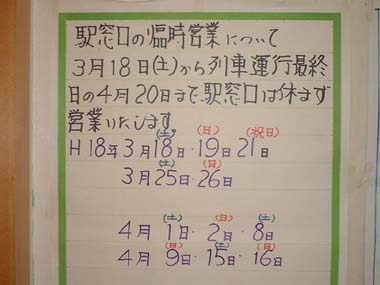 駅窓口の臨時営業について
3月18日(土)から列車運行最終
日の4月20日まで、駅窓口は休まず
営業いたします。
(土) (日) (祝日)
H18年3月18日・19日 21日
(土) (日)
3月25日・26日
(土) (日) (土)
4月 1日・2日・8日
(日) (土) (日)
4月 9日・15日・16日